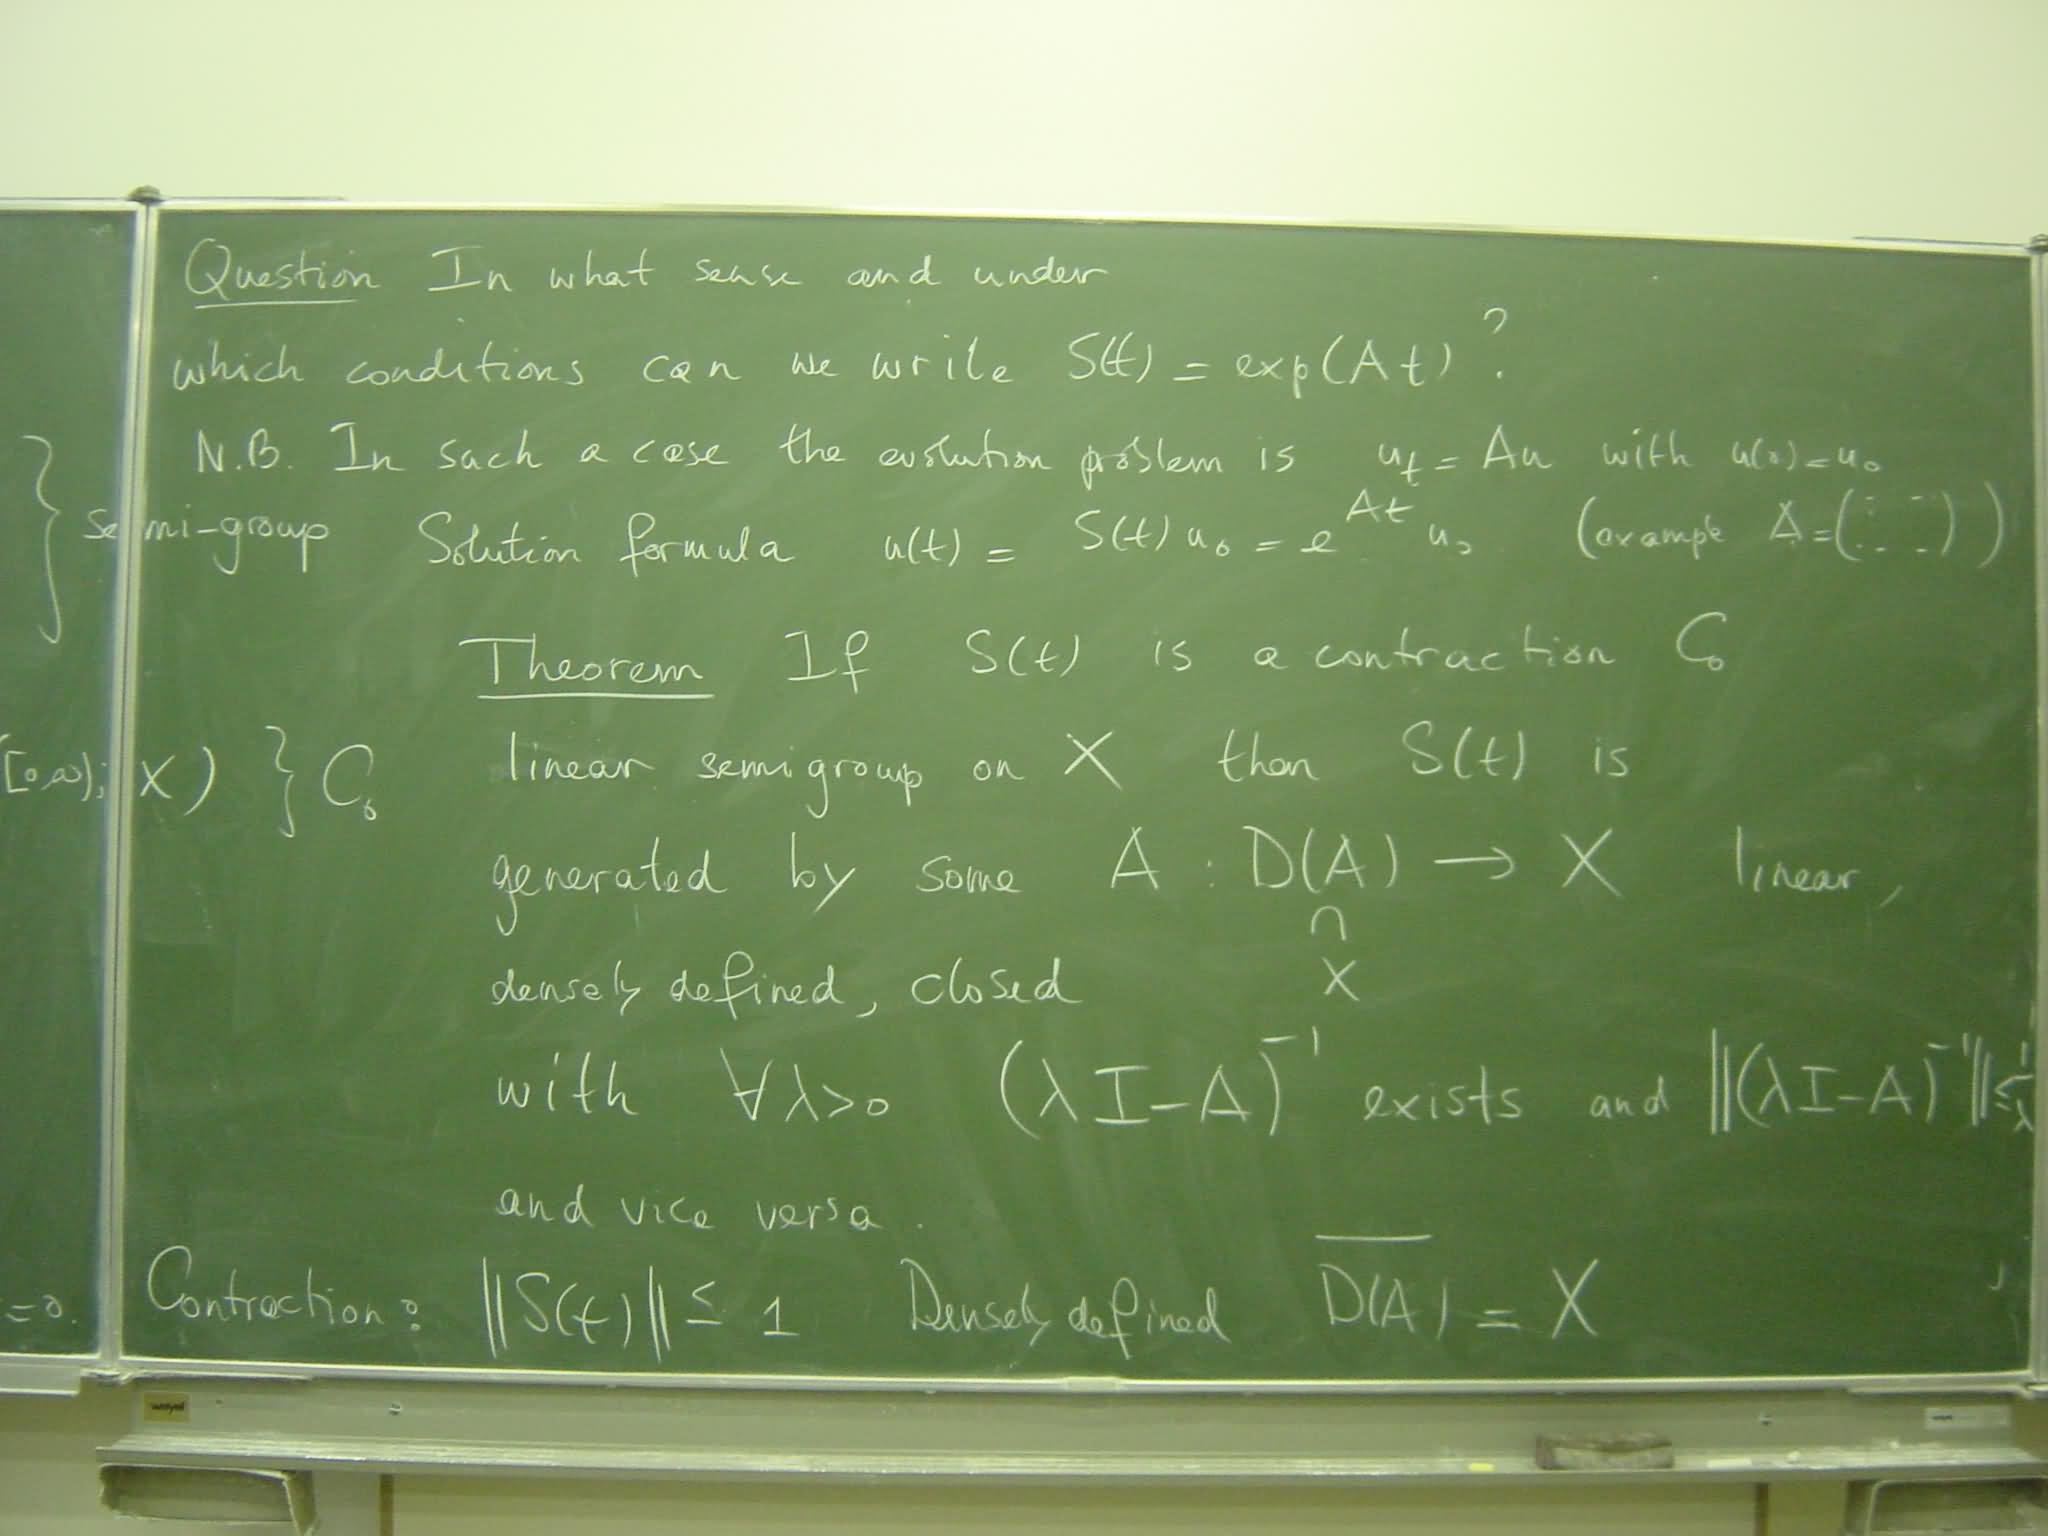 Question In what sense and under
which conditions can we write S(t) = exp(At) ?
N.B. In such a case the evolution problem is u_t = Au with u(0)=u_0
} semi-group Solution formula u(t) = S(t) u_0 = e^{At} u_0 (example A = (: - - . . - - .))
Theorem If S(t) is a contraction C_0
([0,∞); X) } C_0 linear semigroup on X then S(t) is
generated by some A : D(A) → X linear,
∩
densely defined, closed X
with ∀λ>0 (λI-A)^{-1} exists and ‖(λI-A)^{-1}‖ ≤ 1/λ
and vice versa.
=0. Contraction: ‖S(t)‖ ≤ 1 Densely defined \overline{D(A)} = X